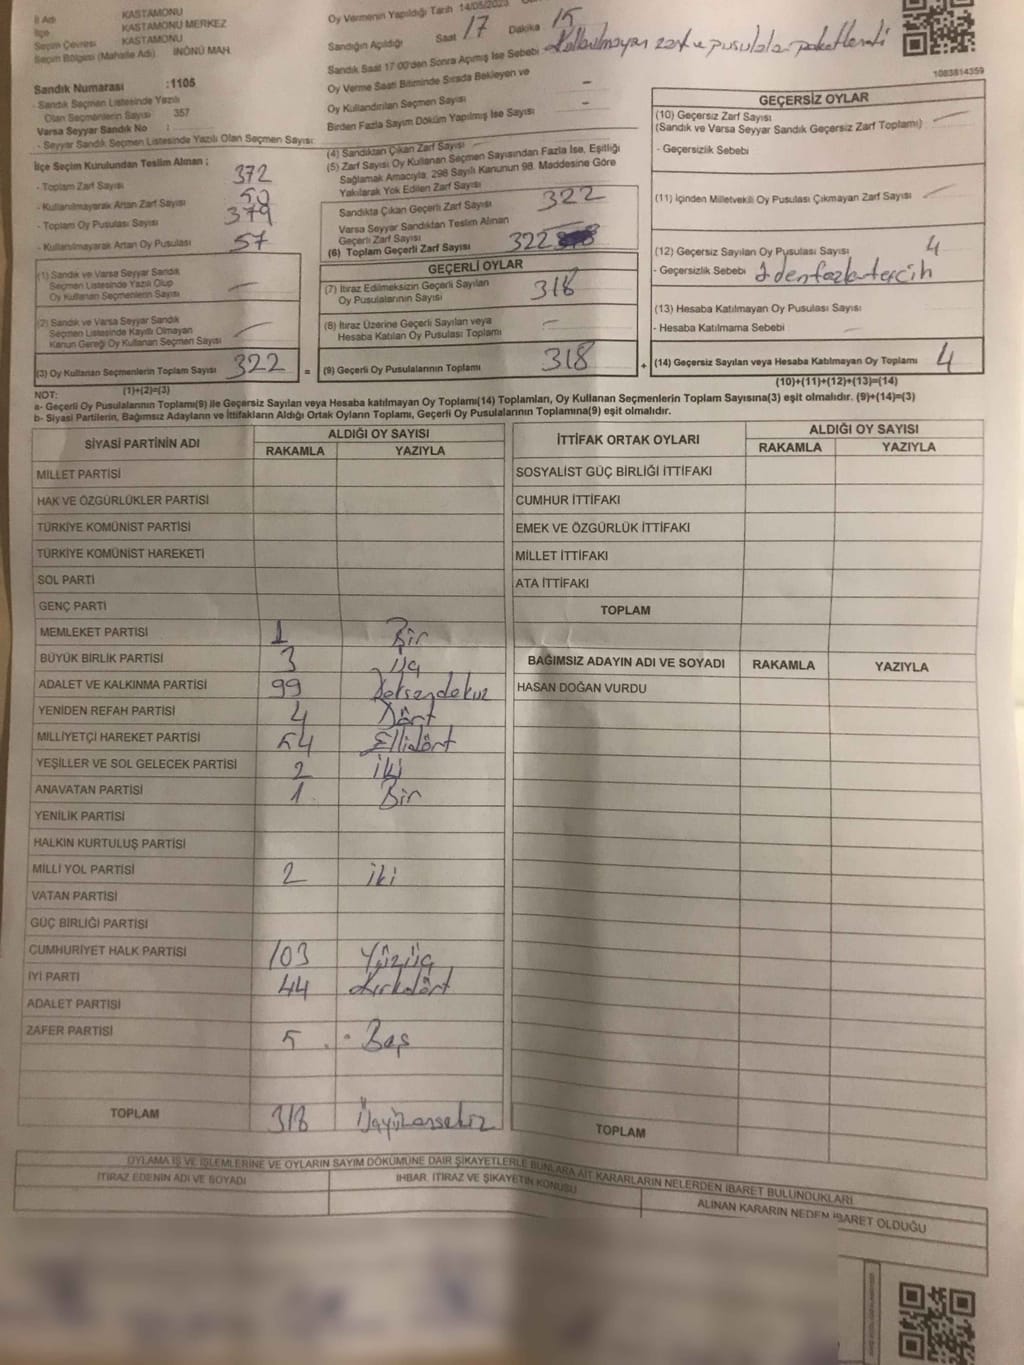 İl Adı KASTAMONU
İlçe KASTAMONU MERKEZ
Seçim Çevresi KASTAMONU
Seçim Bölgesi (Mahalle Adı) İNÖNÜ MAH.
Sandık Numarası :1105
- Sandık Seçmen Listesinde Yazılı
Olan Seçmenlerin Sayısı 357
Varsa Seyyar Sandık No :
- Seyyar Sandık Seçmen Listesinde Yazılı Olan Seçmen Sayısı:
İlçe Seçim Kurulundan Teslim Alınan ;
- Toplam Zarf Sayısı 372
- Kullanılmayarak Artan Zarf Sayısı 50
- Toplam Oy Pusulası Sayısı 379
- Kullanılmayarak Artan Oy Pusulası 57
(1) Sandık ve Varsa Seyyar Sandık
Seçmen Listesinde Yazılı Olup
Oy Kullanan Seçmenlerin Sayısı
(2) Sandık ve Varsa Seyyar Sandık
Seçmen Listesinde Kayıtlı Olmayan
Kanun Gereği Oy Kullanan Seçmen Sayısı
(3) Oy Kullanan Seçmenlerin Toplam Sayısı 322
(1)+(2)=(3)
Oy Vermenin Yapıldığı Tarih 14/05/2023
Sandığın Açıldığı Saat 17 Dakika 15
Sandık Saat 17:00'den Sonra Açılmış İse Sebebi Kullanılmayan zarf ve pusulalar paketlendi
Oy Verme Saati Bitiminde Sırada Bekleyen ve
Oy Kullandırılan Seçmen Sayısı –
Birden Fazla Sayım Döküm Yapılmış İse Sayısı –
(4) Sandıktan Çıkan Zarf Sayısı
(5) Zarf Sayısı Oy Kullanan Seçmen Sayısından Fazla İse, Eşitliği
Sağlamak Amacıyla, 298 Sayılı Kanunun 98. Maddesine Göre
Yakılarak Yok Edilen Zarf Sayısı
Sandıkta Çıkan Geçerli Zarf Sayısı 322
Varsa Seyyar Sandıktan Teslim Alınan
Geçerli Zarf Sayısı
(6) Toplam Geçerli Zarf Sayısı 322
GEÇERLİ OYLAR
(7) İtiraz Edilmeksizin Geçerli Sayılan
Oy Pusulalarının Sayısı 318
(8) İtiraz Üzerine Geçerli Sayılan veya
Hesaba Katılan Oy Pusulası Toplamı –
= (9) Geçerli Oy Pusulalarının Toplamı 318
1083814359
GEÇERSİZ OYLAR
(10) Geçersiz Zarf Sayısı
(Sandık ve Varsa Seyyar Sandık Geçersiz Zarf Toplamı)
- Geçersizlik Sebebi
(11) İçinden Milletvekili Oy Pusulası Çıkmayan Zarf Sayısı
(12) Geçersiz Sayılan Oy Pusulası Sayısı 4
- Geçersizlik Sebebi 1 den fazla tercih
(13) Hesaba Katılmayan Oy Pusulası Sayısı
- Hesaba Katılmama Sebebi
+ (14) Geçersiz Sayılan veya Hesaba Katılmayan Oy Toplamı 4
(10)+(11)+(12)+(13)=(14)
NOT:
a- Geçerli Oy Pusulalarının Toplamı(9) ile Geçersiz Sayılan veya Hesaba katılmayan Oy Toplamı(14) Toplamları, Oy Kullanan Seçmenlerin Toplam Sayısına(3) eşit olmalıdır. (9)+(14)=(3)
b- Siyasi Partilerin, Bağımsız Adayların ve İttifakların Aldığı Ortak Oyların Toplamı, Geçerli Oy Pusulalarının Toplamına(9) eşit olmalıdır.
SİYASİ PARTİNİN ADI ALDIĞI OY SAYISI
RAKAMLA YAZIYLA
MİLLET PARTİSİ
HAK VE ÖZGÜRLÜKLER PARTİSİ
TÜRKİYE KOMÜNİST PARTİSİ
TÜRKİYE KOMÜNİST HAREKETİ
SOL PARTİ
GENÇ PARTİ
MEMLEKET PARTİSİ 1 Bir
BÜYÜK BİRLİK PARTİSİ 3 Üç
ADALET VE KALKINMA PARTİSİ 99 Doksandokuz
YENİDEN REFAH PARTİSİ 4 Dört
MİLLİYETÇİ HAREKET PARTİSİ 54 Ellidört
YEŞİLLER VE SOL GELECEK PARTİSİ 2 İki
ANAVATAN PARTİSİ 1 Bir
YENİLİK PARTİSİ
HALKIN KURTULUŞ PARTİSİ
MİLLİ YOL PARTİSİ 2 iki
VATAN PARTİSİ
GÜÇ BİRLİĞİ PARTİSİ
CUMHURİYET HALK PARTİSİ 103 Yüzüç
İYİ PARTİ 44 Kırkdört
ADALET PARTİSİ
ZAFER PARTİSİ 5 Beş
TOPLAM 318 Üçyüzonsekiz
İTTİFAK ORTAK OYLARI ALDIĞI OY SAYISI
RAKAMLA YAZIYLA
SOSYALİST GÜÇ BİRLİĞİ İTTİFAKI
CUMHUR İTTİFAKI
EMEK VE ÖZGÜRLÜK İTTİFAKI
MİLLET İTTİFAKI
ATA İTTİFAKI
TOPLAM
BAĞIMSIZ ADAYIN ADI VE SOYADI RAKAMLA YAZIYLA
HASAN DOĞAN VURDU
TOPLAM
OYLAMA İŞ VE İŞLEMLERİNE VE OYLARIN SAYIM DÖKÜMÜNE DAİR ŞİKAYETLERLE BUNLARA AİT KARARLARIN NELERDEN İBARET BULUNDUKLARI
İTİRAZ EDENİN ADI VE SOYADI IHBAR, İTİRAZ VE ŞİKAYETİN KONUSU ALINAN KARARIN NEDEN İBARET OLDUĞU